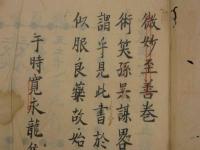 微妙至善卷
術笑孫吴謀畧
謂乎見此書於
似服良藥故始
于時寛永龍